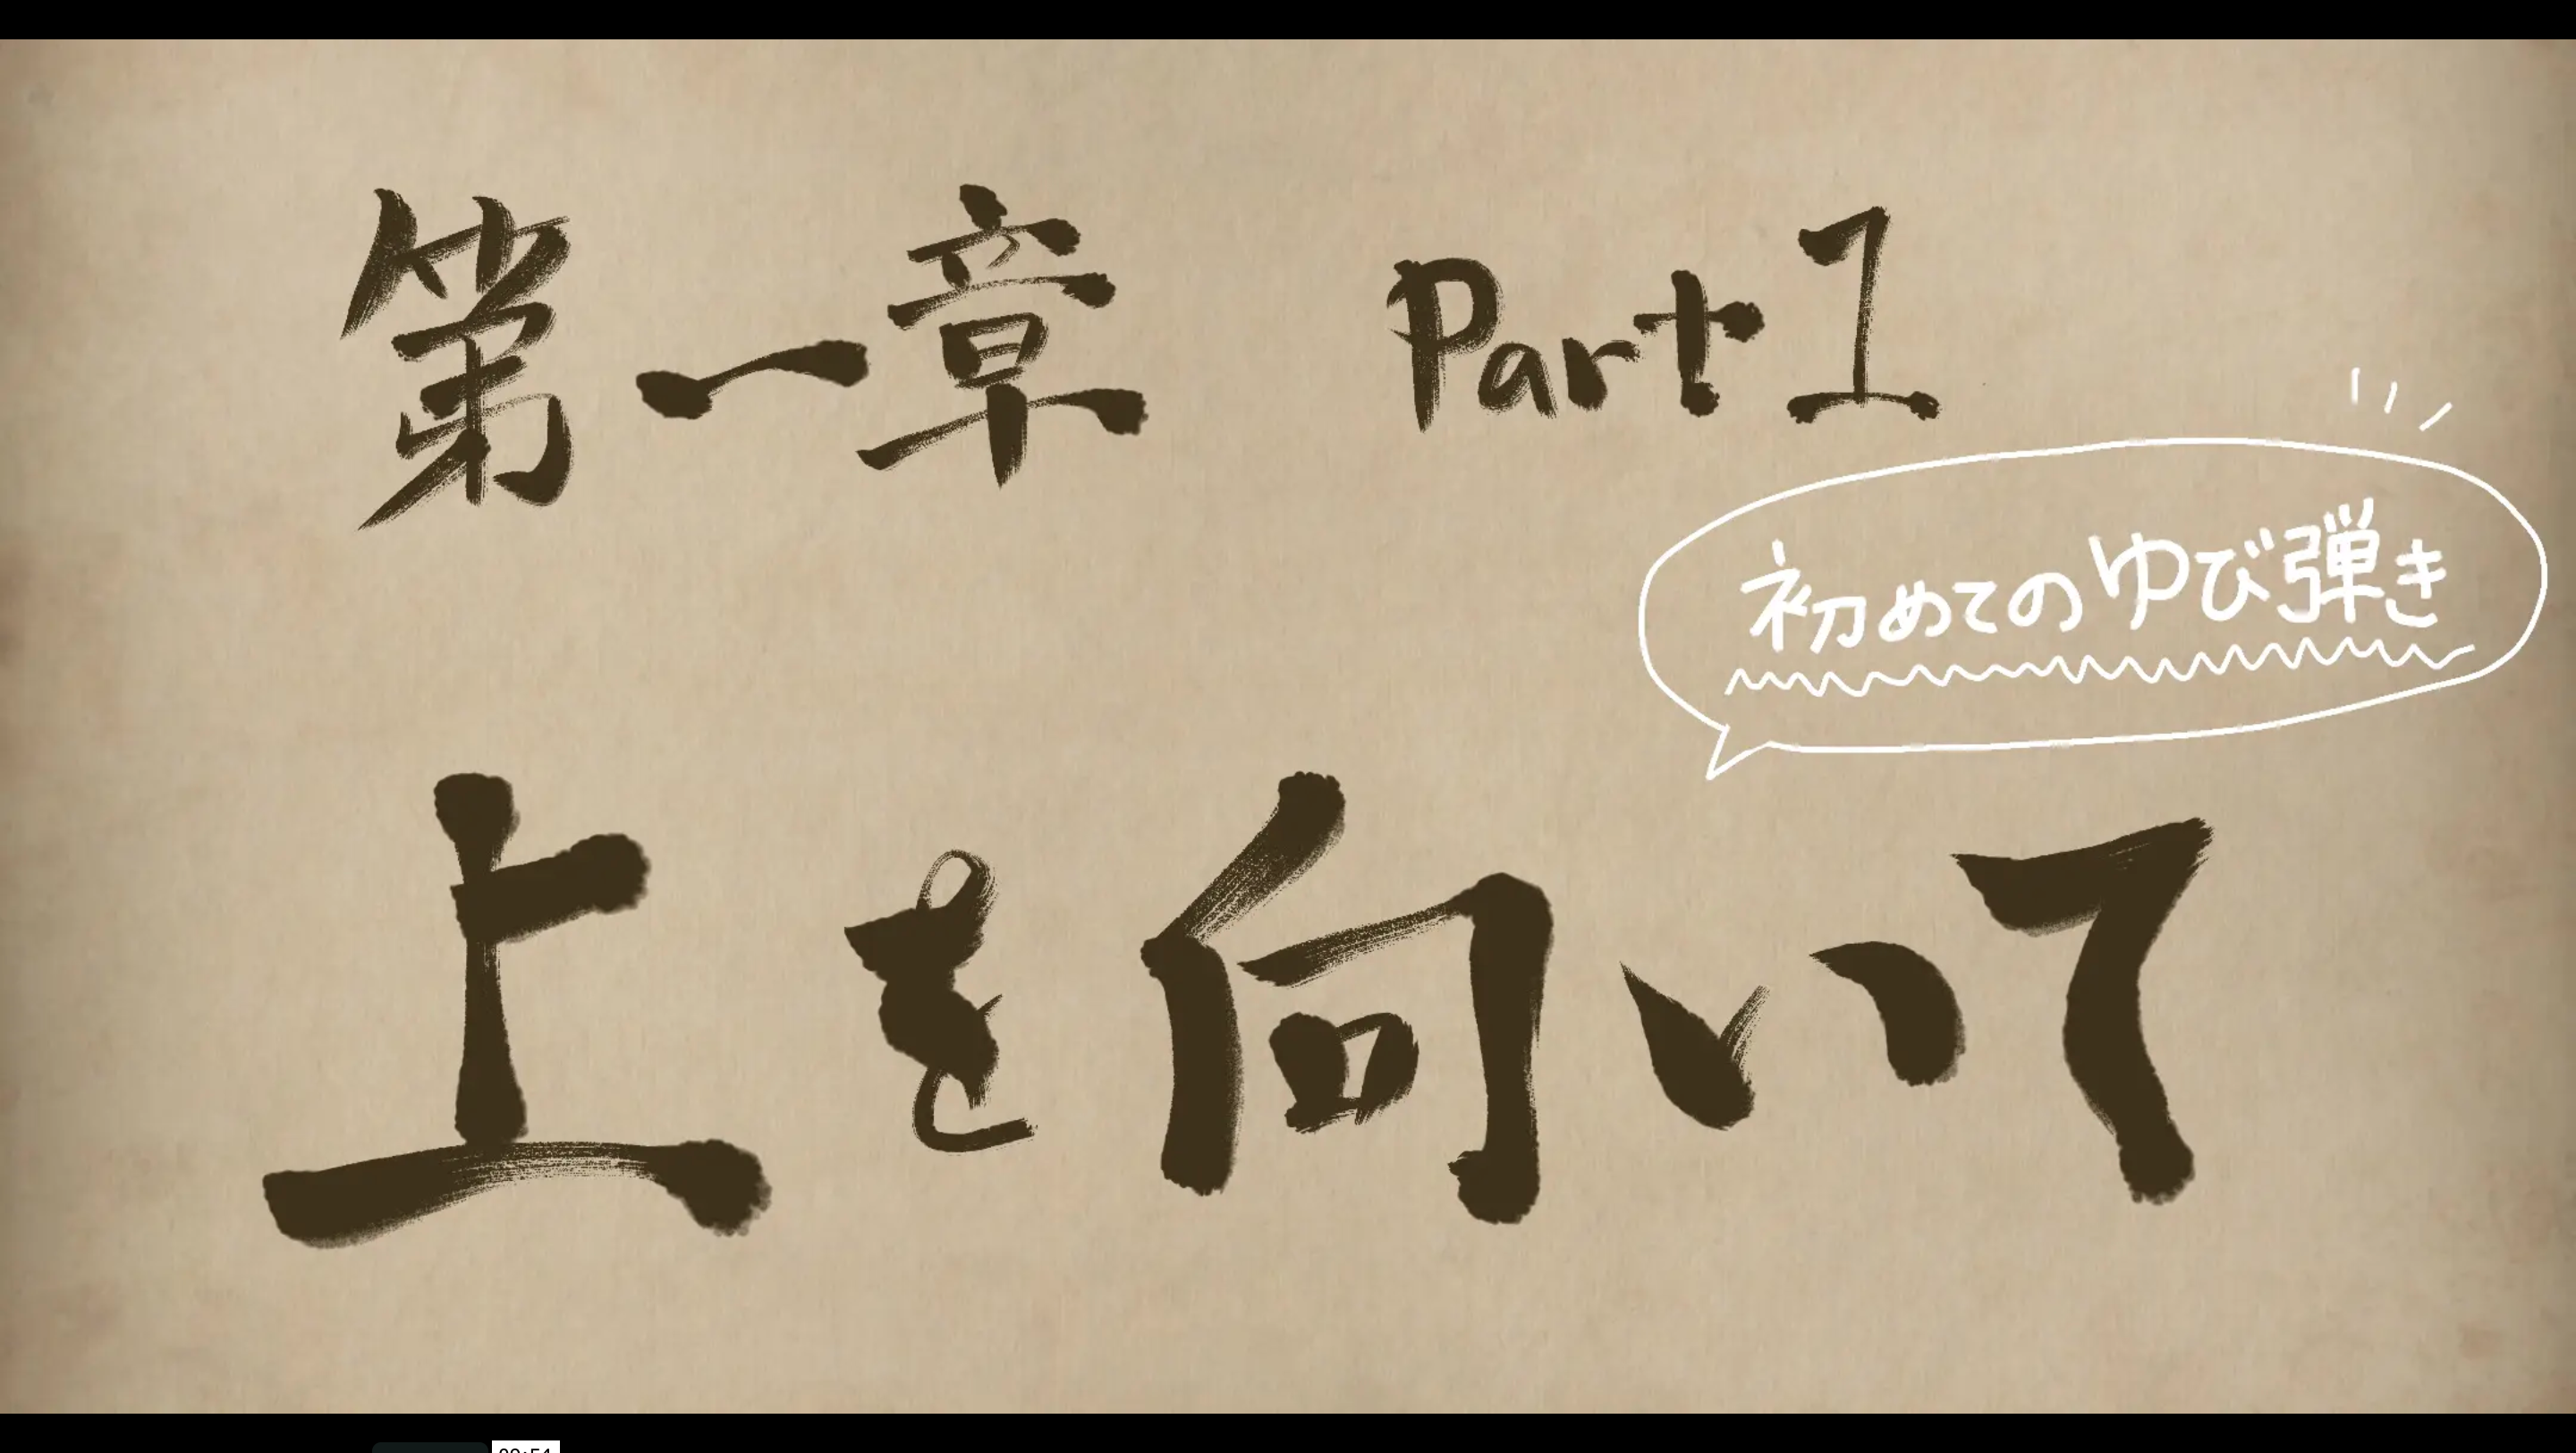 第一章 Part1
初めてのゆび弾き
上を向いて